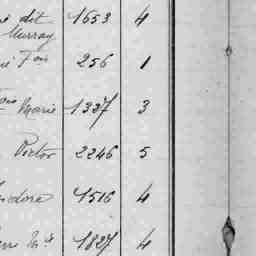 dit 1653 4
Murray
Fois 256 1
Marie 1337 3
Victor 2246 5
Isidore 1516 4
1827 4